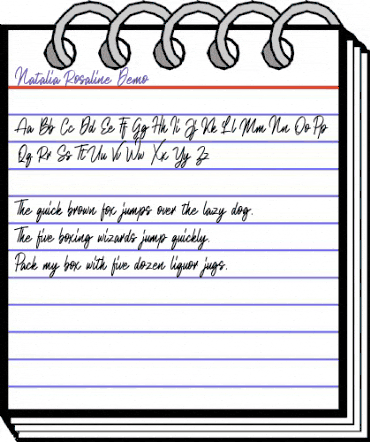 Natalia Rosaline Demo
Aa Bb Cc Dd Ee Ff Gg Hh Ii Jj Kk Ll Mm Nn Oo Pp
Qq Rr Ss Tt Uu Vv Ww Xx Yy Zz
The quick brown fox jumps over the lazy dog.
The five boxing wizards jump quickly.
Pack my box with five dozen liquor jugs.